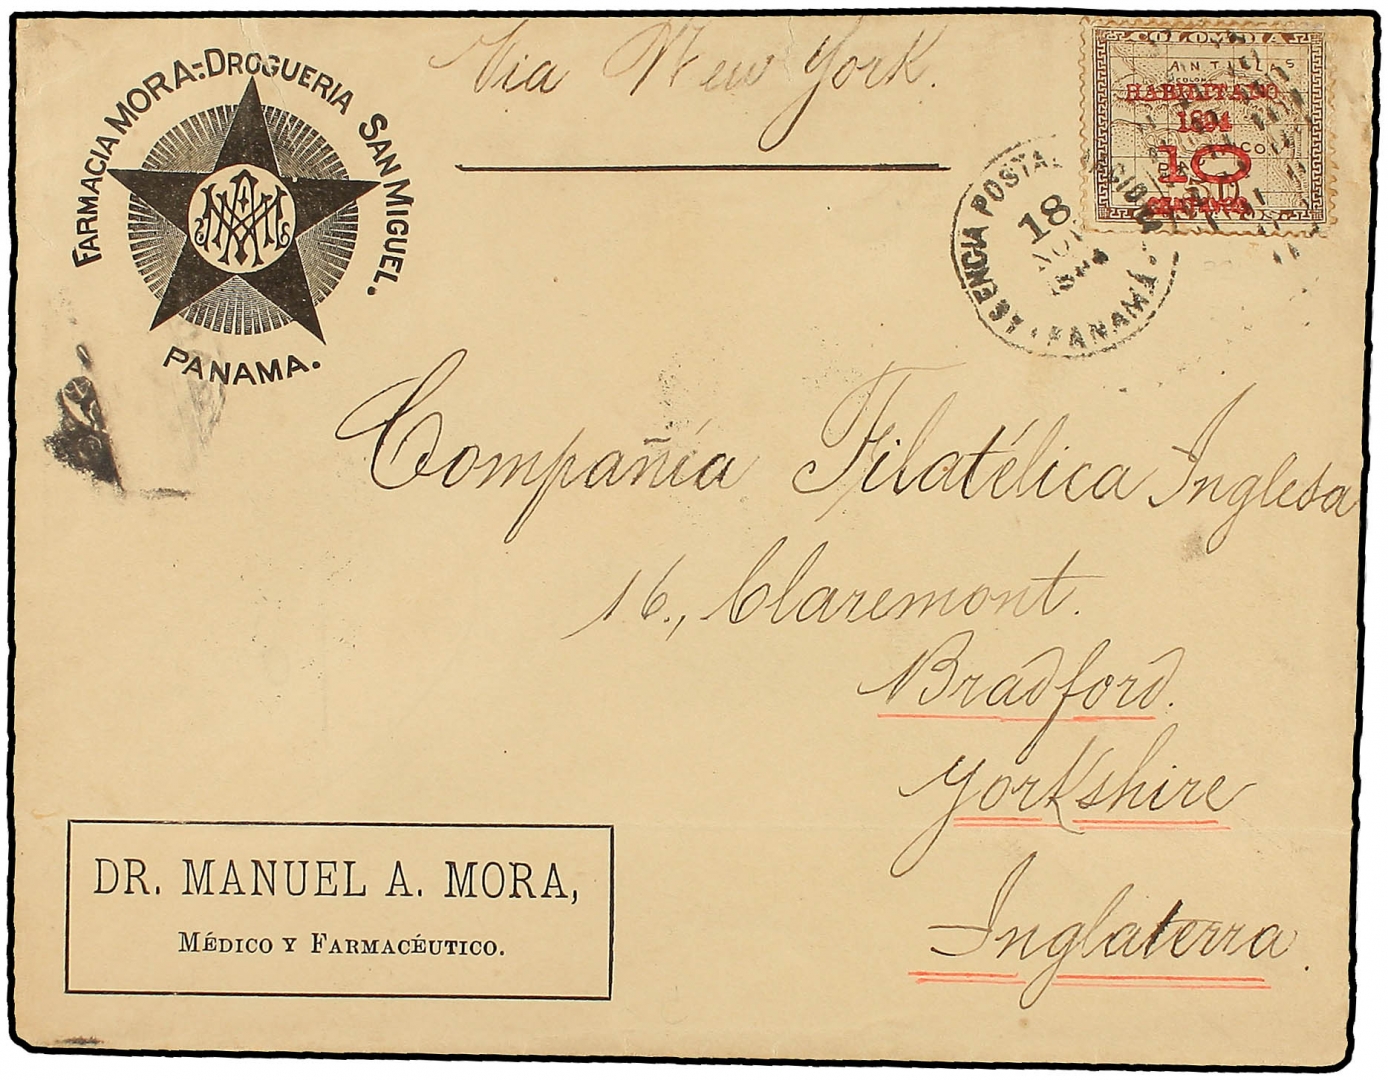 FARMACIA MORA-DROGUERIA SAN MIGUEL.
PANAMA.
Via New York.
COLOMBIA
ANTILLAS
COLON
HABILITADO
1894
10
CENTAVOS
AGENCIA POSTAL NACIONAL
18
NOV
PANAMA
Compañía Filatélica Inglesa
16., Claremont.
Bradford.
Yorkshire
Inglaterra.
DR. MANUEL A. MORA,
MÉDICO Y FARMACÉUTICO.